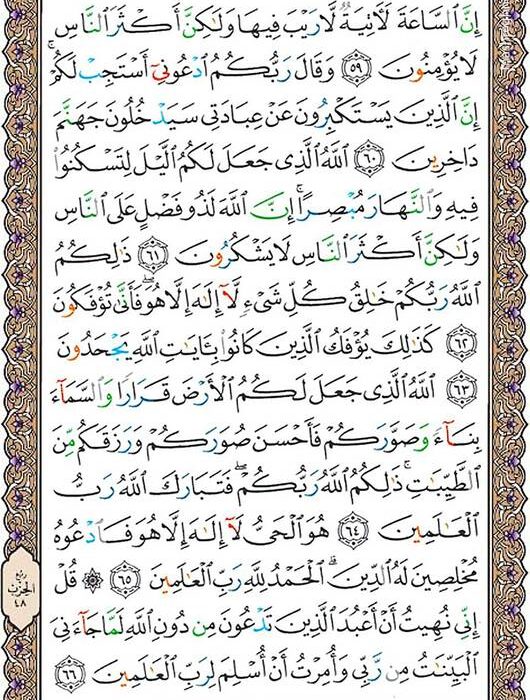 إِنَّ ٱلسَّاعَةَ لَأٓتِيَةٌ لَّا رَيْبَ فِيهَا وَلَٰكِنَّ أَكْثَرَ ٱلنَّاسِ
لَا يُؤْمِنُونَ ٥٩ وَقَالَ رَبُّكُمُ ٱدْعُونِىٓ أَسْتَجِبْ لَكُمْ ۚ
إِنَّ ٱلَّذِينَ يَسْتَكْبِرُونَ عَنْ عِبَادَتِى سَيَدْخُلُونَ جَهَنَّمَ
دَاخِرِينَ ٦٠ ٱللَّهُ ٱلَّذِى جَعَلَ لَكُمُ ٱلَّيْلَ لِتَسْكُنُوا۟
فِيهِ وَٱلنَّهَارَ مُبْصِرًا ۚ إِنَّ ٱللَّهَ لَذُو فَضْلٍ عَلَى ٱلنَّاسِ
وَلَٰكِنَّ أَكْثَرَ ٱلنَّاسِ لَا يَشْكُرُونَ ٦١ ذَٰلِكُمُ
ٱللَّهُ رَبُّكُمْ خَٰلِقُ كُلِّ شَىْءٍ لَّآ إِلَٰهَ إِلَّا هُوَ ۖ فَأَنَّىٰ تُؤْفَكُونَ
٦٢ كَذَٰلِكَ يُؤْفَكُ ٱلَّذِينَ كَانُوا۟ بِـَٔايَٰتِ ٱللَّهِ يَجْحَدُونَ
٦٣ ٱللَّهُ ٱلَّذِى جَعَلَ لَكُمُ ٱلْأَرْضَ قَرَارًا وَٱلسَّمَآءَ
بِنَآءً وَصَوَّرَكُمْ فَأَحْسَنَ صُوَرَكُمْ وَرَزَقَكُم مِّنَ
ٱلطَّيِّبَٰتِ ۚ ذَٰلِكُمُ ٱللَّهُ رَبُّكُمْ ۖ فَتَبَارَكَ ٱللَّهُ رَبُّ
ٱلْعَٰلَمِينَ ٦٤ هُوَ ٱلْحَىُّ لَآ إِلَٰهَ إِلَّا هُوَ فَٱدْعُوهُ
مُخْلِصِينَ لَهُ ٱلدِّينَ ۗ ٱلْحَمْدُ لِلَّهِ رَبِّ ٱلْعَٰلَمِينَ ٦٥ ۞ قُلْ
إِنِّى نُهِيتُ أَنْ أَعْبُدَ ٱلَّذِينَ تَدْعُونَ مِن دُونِ ٱللَّهِ لَمَّا جَآءَنِىَ
ٱلْبَيِّنَٰتُ مِن رَّبِّى وَأُمِرْتُ أَنْ أُسْلِمَ لِرَبِّ ٱلْعَٰلَمِينَ ٦٦
ربع
الحزب
٤٨